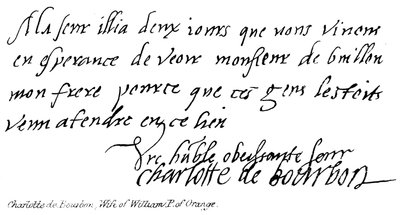 A la seur illia deux iours que nous vinems
en esperance de veoir monsieur de
mon frere pource que ces gens
venu atendre en ce lieu
Vre hûble obeissante seur
Charlotte de Bourbon
Charlotte de Bourbon, Wife of William P. of Orange.